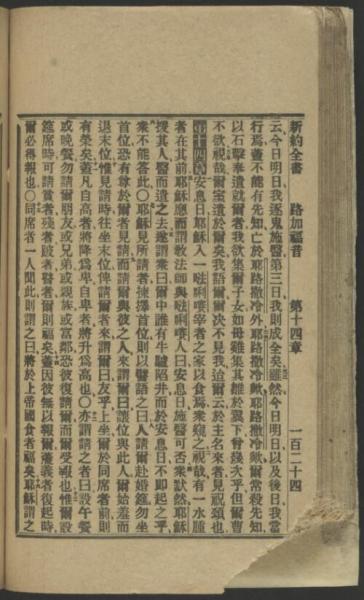 新約全書　路加福音　第十四章　一百二十四
云、今日明日、我逐鬼施醫、第三日、我則成全矣、雖然、今日明日、以及後日、我當
行焉、蓋不能有先知、亡於耶路撒冷外、耶路撒冷歟、耶路撒冷歟、爾常殺先知、
以石擊奉遣就爾者、我欲集爾子女、如母雞集其雛於翼下、曾幾次乎、但爾曹
不欲、視哉、爾室遺於爾矣、我語爾、爾決不見我、迨爾云、於主名來者、見祝頌也
第十四章　安息日、耶穌入一𠵽唎㘔宰者之家、以食焉、衆窺之、視哉、有一水腫
者在其前、耶穌應而謂教法師與𠵽唎㘔人曰、安息日施醫、可否、衆默然、耶穌
援其人、醫而遣之去、遂謂衆曰、爾中誰有牛驢陷井、而於安息日不即起之乎、
衆不能答此○耶穌見所請者、揀擇首位、則以譬語之曰、人請爾赴婚筵、勿坐
首位、恐有尊於爾者見請、而請爾與彼之人、來謂爾曰、讓位與此人、爾始羞而
退末位、惟見請時、往坐末位、俾請爾者來、謂爾曰、友乎、上坐、爾於同席者前、則
有榮矣、蓋凡自高者、將降爲卑、自卑者、將升爲高也○亦謂請之者曰、設午餐
或晚餐、勿請爾朋友、或兄弟、或親族、或富鄰、恐彼復請爾、而爾受報也、惟爾設
筵席時、可請貧者、殘者、跛者、瞽者、爾則福矣、蓋因彼無以報爾、蓋義者復起時、
爾必得報也○同席者一人聞此、則謂之曰、將於上帝國食者福矣、耶穌謂之